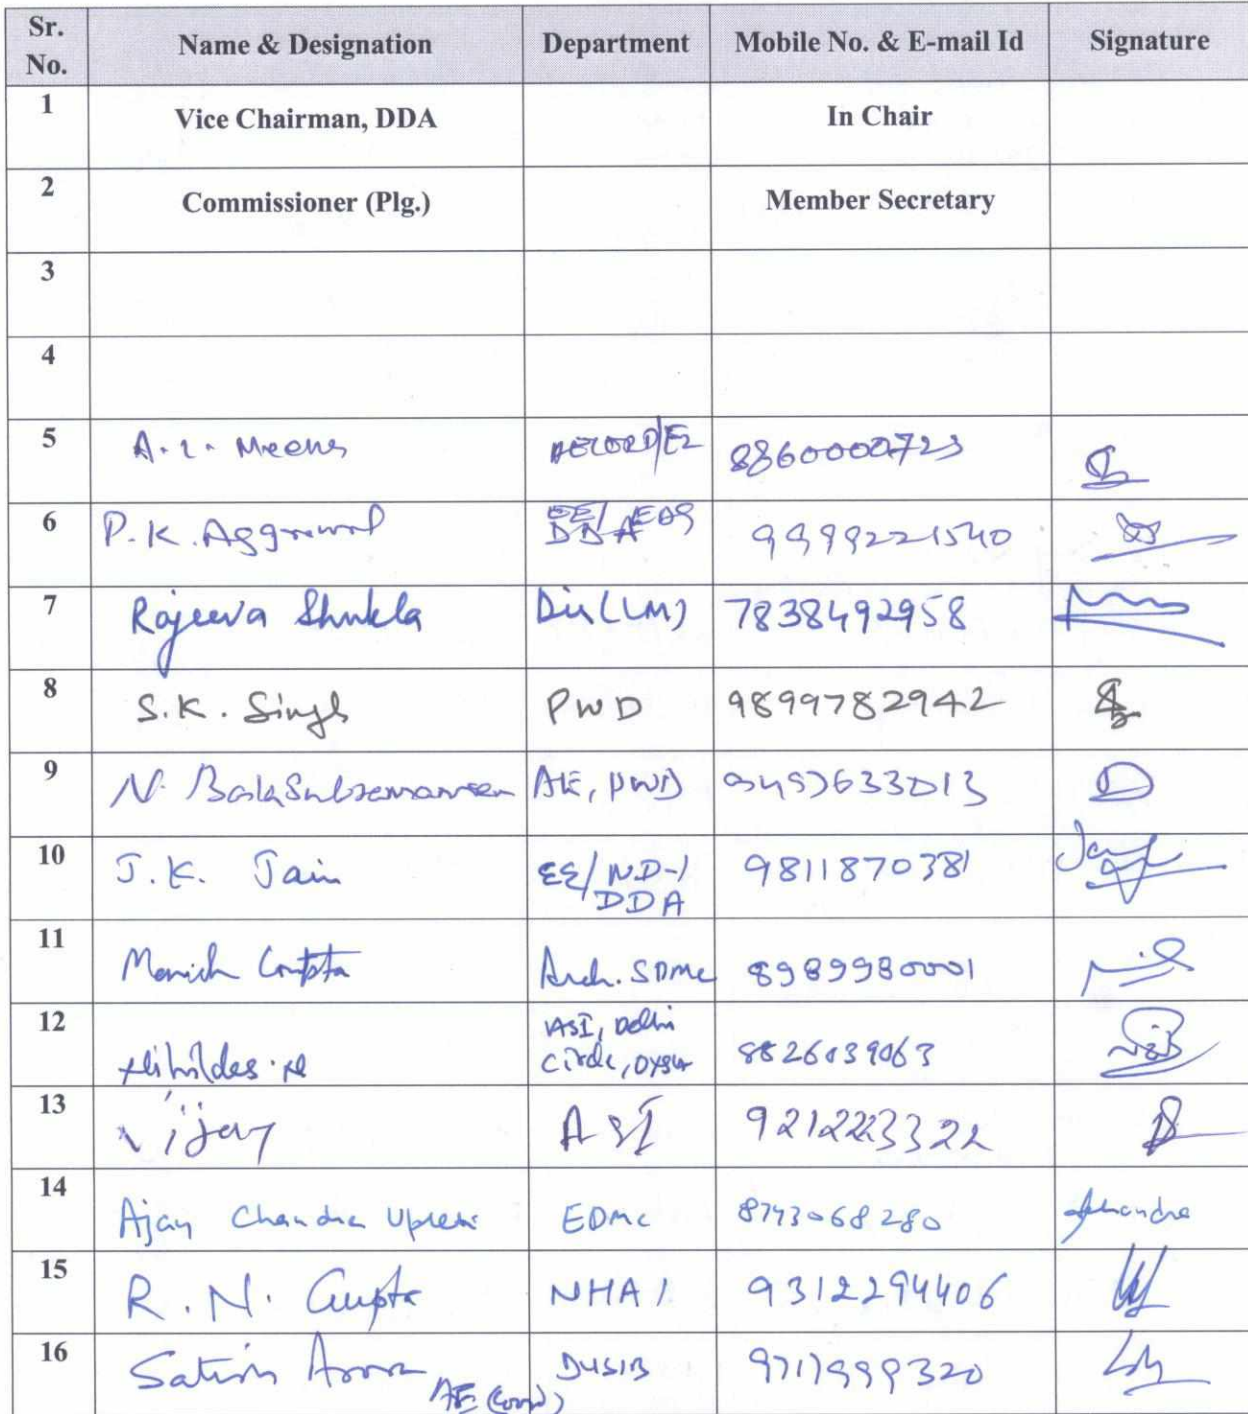 Sr. No. Name & Designation Department Mobile No. & E-mail Id Signature
1 Vice Chairman, DDA In Chair
2 Commissioner (Plg.) Member Secretary
3
4
5 A.L. Meena 8860000723
6 P.K. Aggrawal EE/ EDS DDA 9999221540
7 Rajeeva Shukla Dir(LM) 7838492958
8 S.K. Singh PWD 9899782942
9 N. BalaSubramanian AE, PWD
10 J.K. Jain EE/ND-1 DDA 9811870381
11 Manish Gupta Arch. SDMC 8989980001
12 ASI, Delhi Circle, 8826039063
13 Vijay ASI
14 Ajay Chandra Upreti EDMC 8743068280
15 R.N. Gupta NHAI 9312294406
16 Satish Arora AE (Coord) DUSIB 9717999320